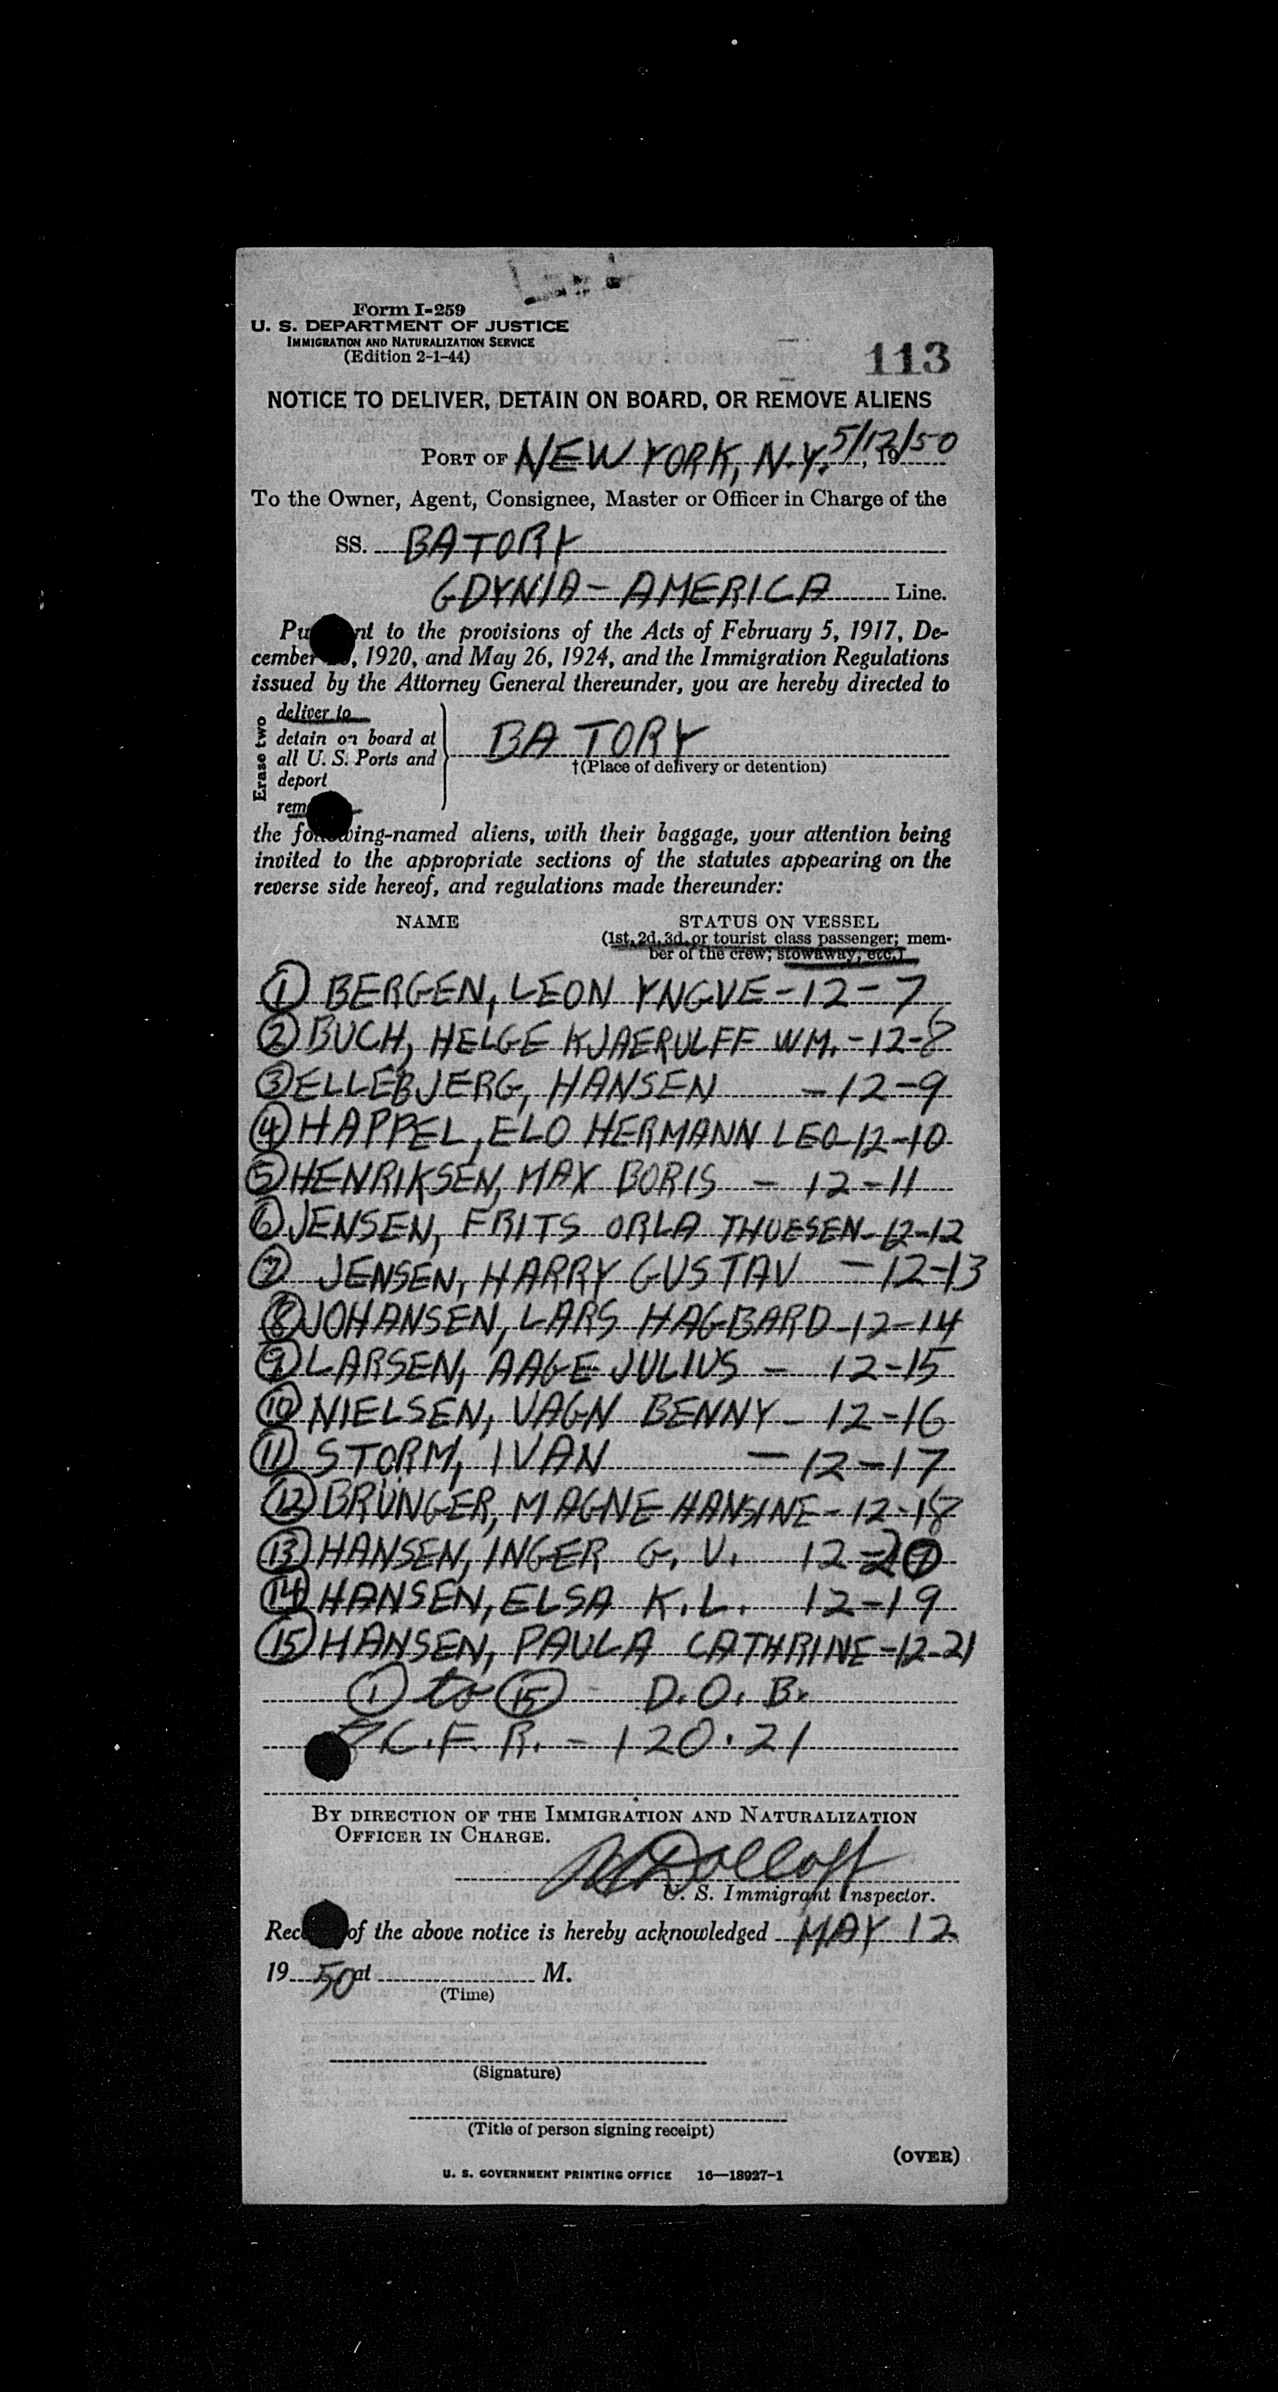 Form I-259
U. S. DEPARTMENT OF JUSTICE
IMMIGRATION AND NATURALIZATION SERVICE
(Edition 2-1-44)
113
NOTICE TO DELIVER, DETAIN ON BOARD, OR REMOVE ALIENS
PORT OF NEW YORK, N.Y. 5/12/50, 19
To the Owner, Agent, Consignee, Master or Officer in Charge of the
SS. BATORY
GDYNIA-AMERICA Line.
to the provisions of the Acts of February 5, 1917, De-
cember , 1920, and May 26, 1924, and the Immigration Regulations
issued by the Attorney General thereunder, you are hereby directed to
Erase two
deliver to
detain on board at
all U. S. Ports and
deport
BATORY
†(Place of delivery or detention)
the following-named aliens, with their baggage, your attention being
invited to the appropriate sections of the statutes appearing on the
reverse side hereof, and regulations made thereunder:
NAME STATUS ON VESSEL
(1st, 2d, 3d, or tourist class passenger; mem-
ber of the crew; stowaway, etc.)
1 BERGEN, LEON YNGVE - 12 - 7
2 BUCH, HELGE KJAERULFF WM. - 12-8
3 ELLEBJERG, HANSEN - 12-9
4 HAPPEL, ELO HERMANN LEO-12-10
5 HENRIKSEN, MAX BORIS - 12-11
6 JENSEN, FRITS ORLA THUESEN-12-12
7 JENSEN, HARRY GUSTAV - 12-13
8 JOHANSEN, LARS HAGBARD-12-14
9 LARSEN, AAGE JULIUS - 12-15
10 NIELSEN, VAGN BENNY - 12-16
11 STORM, IVAN - 12-17
12 BRÜNGER, MAGNE HANSINE - 12-18
13 HANSEN, INGER G. V. 12-20
14 HANSEN, ELSA K. L. 12-19
15 HANSEN, PAULA CATHRINE-12-21
1 to 15 - D. O. B.
C. F. R. - 120.21
BY DIRECTION OF THE IMMIGRATION AND NATURALIZATION
OFFICER IN CHARGE.
Dolloff
U. S. Immigrant Inspector.
of the above notice is hereby acknowledged MAY 12
19 50 at M.
(Time)
(Signature)
(Title of person signing receipt)
(OVER)
U. S. GOVERNMENT PRINTING OFFICE 16—18927-1